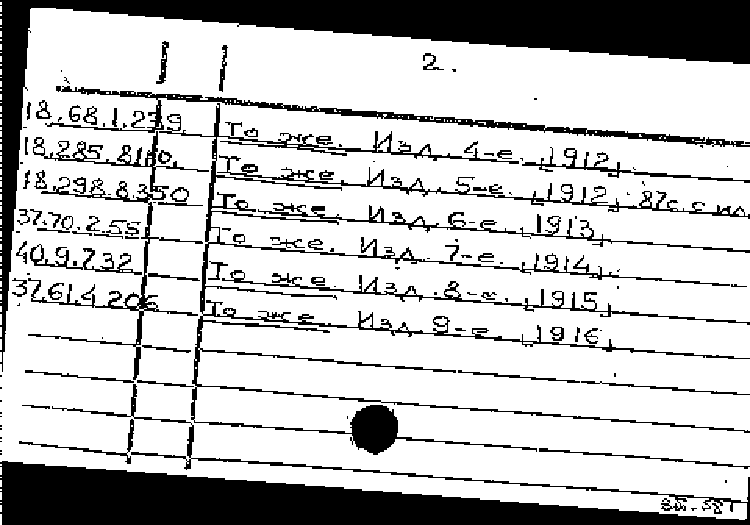 2.
18.68.1.279 То же. Изд. 4-е. [1912].
18.285.8.110. То же. Изд. 5-е. [1912]. 87с. с ил.
18.298.8.350 То же. Изд. 6-е. [1913].
37.70.2.55 То же. Изд. 7-е. [1914].
40.9.7.32 То же Изд. 8-е. [1915].
37.61.4.206 То же. Изд. 9-е. [1916].